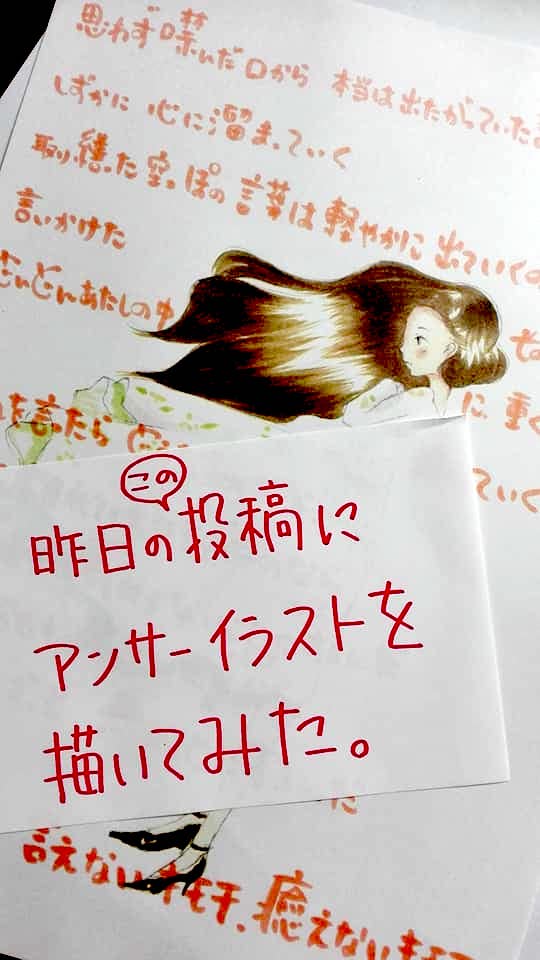 思わず噤んだ口から 本当は出たがっていた
しずかに 心に溜まっていく
取り繕った空っぽの言葉は軽やかに 出ていくの
言いかけた
どんどんあたしの中
に 重く
を言たら
ていく
この
昨日の投稿に
アンサーイラストを
描いてみた。
た
言えないキモチ、癒えないキモチ